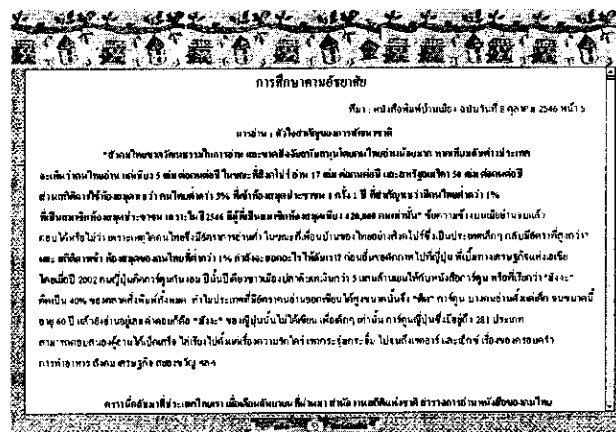 การศึกษาตามอัธยาศัย
ที่มา : หนังสือพิมพ์บ้านเมือง ฉบับวันที่ 8 ตุลาคม 2546 หน้า 5
การอ่าน : หัวใจสำคัญของการพัฒนาชาติ
"สังคมไทยขาดวัฒนธรรมในการอ่าน และขาดสิ่งจูงใจสนับสนุนโดยคนไทยอ่านน้อยมาก หากเทียบกับต่างประเทศ
จะเห็นว่าคนไทยอ่านแค่เพียง 5 เล่มต่อคนต่อปี ในขณะที่สิงคโปร์อ่าน 17 เล่มต่อคนต่อปี และสหรัฐอเมริกา 50 เล่มต่อคนต่อปี
ส่วนสถิติการใช้ห้องสมุดพบว่า คนไทยต่ำกว่า 3% ที่เข้าห้องสมุดประชาชน 1 ครั้ง 1 ปี ที่สำคัญพบว่ามีคนไทยต่ำกว่า 1%
ที่เป็นสมาชิกห้องสมุดประชาชน เพราะในปี 2546 มีผู้ที่เป็นสมาชิกห้องสมุดเพียง 420,000 คนเท่านั้น" ข้อความข้างบนเมื่ออ่านจบแล้ว
ตอบได้หรือไม่ว่า เพราะเหตุใดคนไทยจึงมีอัตราการอ่านต่ำ ในขณะที่เพื่อนบ้านของไทยอย่างสิงคโปร์ซึ่งเป็นประเทศเล็กๆ กลับมีอัตราที่สูงกว่า?
และ สถิติการเข้าห้องสมุดของคนไทยที่ต่ำกว่า 1% กำลังจะบอกอะไรให้กับเรา? ก่อนอื่นขอยกภาพไปที่ญี่ปุ่น พี่เบิ้มทางเศรษฐกิจแห่งเอเชีย
โดยเมื่อปี 2002 คนญี่ปุ่นคิดการ์ตูนกันงอม ปีนั้นปีเดียวชาวเมืองปลาดิบ 5 แสนล้านเยนให้กับหนังสือการ์ตูน หรือที่เรียกว่า "มังงะ"
คิดเป็น 40% ของตลาดสิ่งพิมพ์ทั้งหมด ทำไมประเทศที่มีอัตราคนอ่านออกเขียนได้สูงขนาดนั้นจึง "ติด" การ์ตูน บางคนอ่านตั้งแต่เด็ก จนขนาดนี้
อายุ 60 ปี แล้วยังอ่านอยู่เลย คำตอบก็คือ "มังงะ" ของญี่ปุ่นนั้นไม่ได้เขียน เพื่อเด็กๆ เท่านั้น การ์ตูนญี่ปุ่นซึ่งมีอยู่ถึง 281 ประเภท
สามารถตอบสนองผู้อ่านได้เบ็ดเสร็จ ไล่เรียงไปตั้งแต่เรื่องความรัก เรื่องของครอบครัว
การทำอาหาร สังคม เศรษฐกิจ สยองขวัญ ฯลฯ
คราวนี้กลับมาที่ประเทศไทยเรา เมื่อเดือนกันยายน ที่ผ่านมา สำนักงานสถิติแห่งชาติ สำรวจการอ่านหนังสือของคนไทย